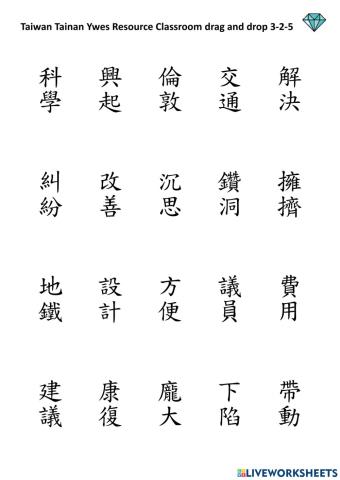 Taiwan Tainan Ywes Resource Classroom drag and drop 3-2-5
科學 興起 倫敦 交通 解決
糾紛 改善 沉思 鑽洞 擁擠
地鐵 設計 方便 議員 費用
建議 康復 龐大 下陷 帶動
LIVEWORKSHEETS